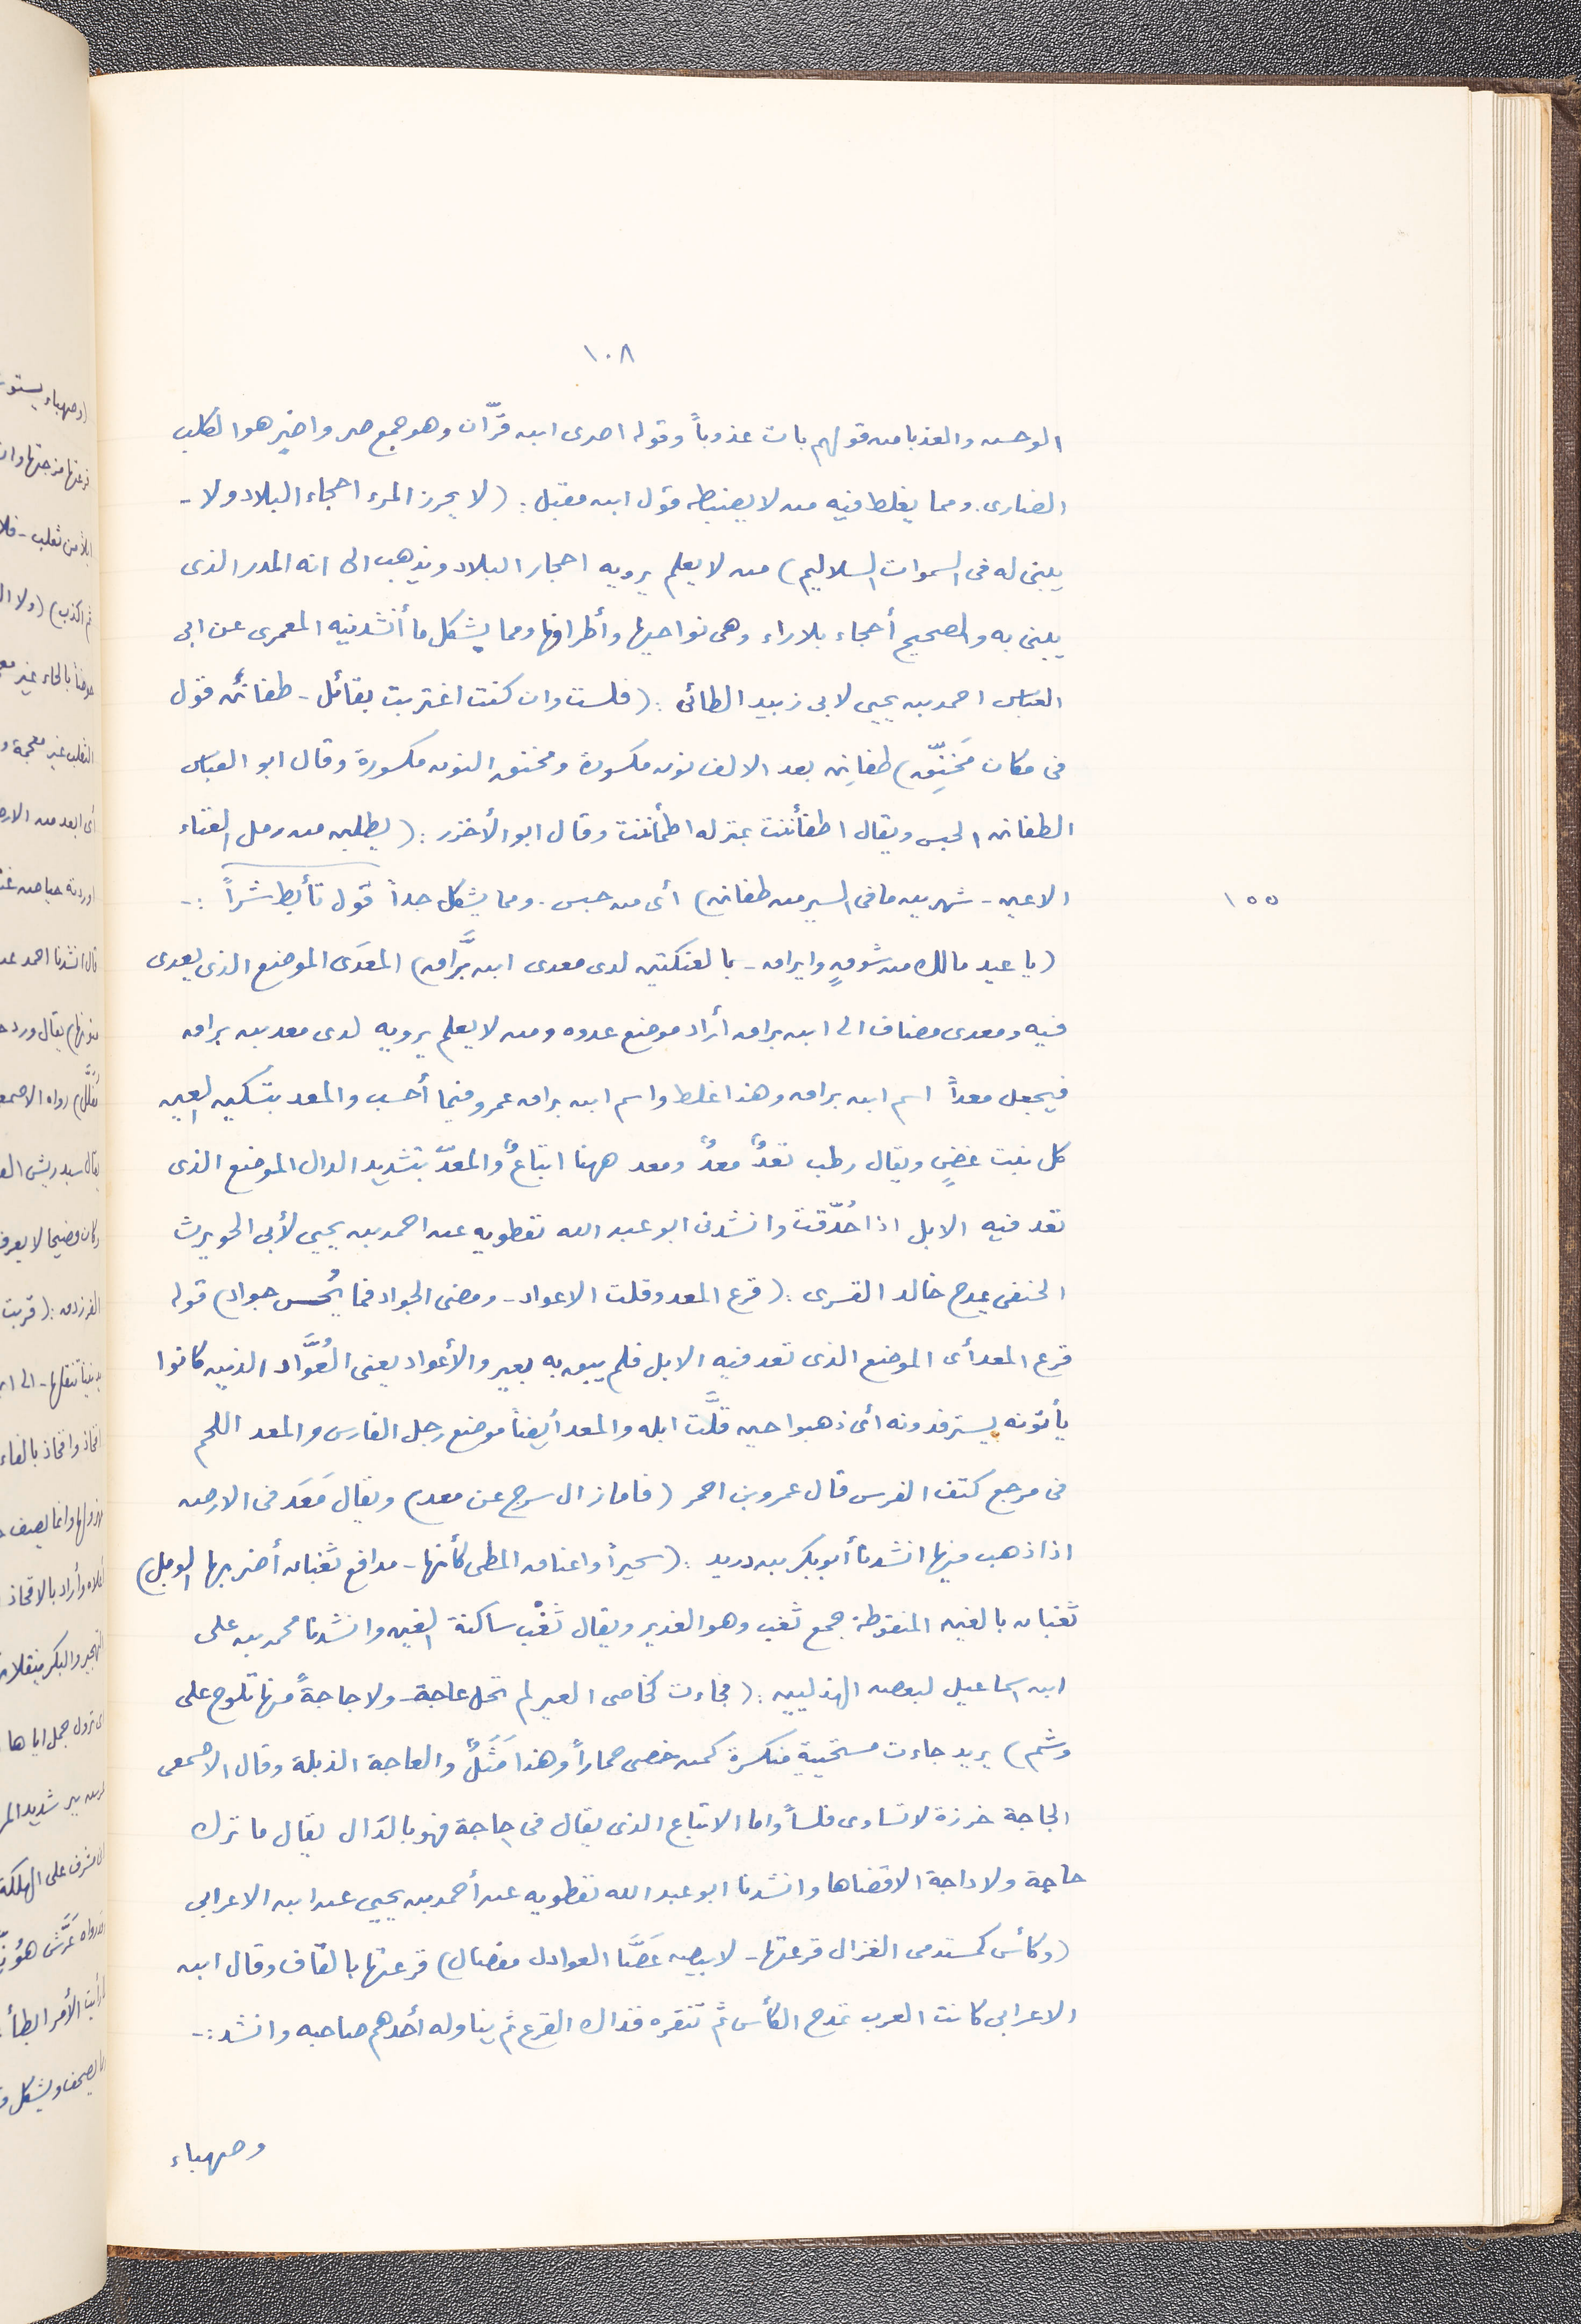 ١٠٨
الوحش والعذبا من قولهم بات عذوباً وقوله احدى ابن قرّان وهو جمع صر واخير هو الكلب
الضارى. ومما يغلط فيه من لا يضبط قول ابن مقبل: (لا يحرز المرء احجاء البلاد ولا -
يبنى له فى السموات السلاليم) من لا يعلم يرويه احجار البلاد ويذهب الى انه المدر الذى
يبنى به والصحيح أحجاء بلا راء وهى نواحيها وأطرافها ومما يشكل ما أنشدنيه المعمرى عن ابى
العباس احمد بن يحيى لابى زبيد الطائى: (فلست وان كنت اغتربت بقائل - طفانن قول
فى مكان مَخنِّق) طفانِن بعد الالف نون مكسورة ومخنق النون مكسورة وقال ابو العباس
الطفانن الحبس ويقال اطفأننت بمنزله اطمأننت وقال ابو الأخزر: (يطلبن من رمل الغناء
الاعين - شهرين ما فى السير من طفانن) أى من حبس. ومما يشكل جداً قول تأبط شراً :-
١٥٥
(يا عيد مالك من شوقٍ وايراق - بالعنكتين لدى معدى ابن بَرَّاق) المعدَى الموضع الذى يعدى
فيه ومعدى مضاف الى ابن براق أراد موضع عدوه ومن لا يعلم يرويه لدى معد بن براق
فيجعل معداً اسم ابن براق وهذا غلط واسم ابن براق عمرو فيما أحسب والمعد بتسكين العين
كل نبت غضٍ ويقال رطب ثعدٌ معدٌ ومعد ههنا اتباعٌ والمعدّ بتشديد الدال الموضع الذى
تعد فيه الابل اذا حُدّقت وانشدنى ابو عبد الله نفطويه عن احمد بن يحيى لأبى الحويرث
الحنفى يمدح خالد القسرى: (قرع المعد وقلت الاعواد - ومضى الجواد فما يُحس جواد) قوله
قرع المعد أى الموضع الذى تعد فيه الابل فلم يبق به بعير والأعواد يعنى العُوَّاد الذين كانوا
يأتونه يسترفدونه أى ذهبوا حين قلَّت ابله والمعد أيضاً موضع رجل الفارس والمعد اللحم
فى مرجع كتف الفرس قال عمرو بن احمر (فاما زال سرج عن معد) ويقال مَعَد فى الارض
اذا ذهب فيها انشدنا أبو بكر بن دريد: (سحيراً واعناق المطى كأنها - مدافع ثغبان أضر بها الوبل)
ثغبان بالغين المنقوطة جمع ثغب وهو الغدير ويقال ثغْب ساكنة الغين وانشدنا محمد بن على
ابن اسماعيل لبعض الهذليين: (فجاءت كخاصى العير لم تحل عاجة - ولا جاجةً منها تلوح على
وشم) يريد جاءت مستحيية منكسرة كمن خصى حماراً وهذا مَثَلٌ والعاجة الذبلة وقال الاصمعى
الجاجة خرزة لا تساوى فلساً واما الاتباع الذى يقال فى حاجة فهو بالدال يقال ما ترك
حاجة ولا داجة الا قضاها وانشدنا ابو عبد الله نفطويه عن أحمد بن يحيى عن ابن الاعرابى
(وكأس كمستدمى الغزال قرعتها - لابيض عَصَّا العوادل مفضال) قرعتها بالقاف وقال ابن
الاعرابى كانت العرب تمدح الكأس ثم تنقره فذاك القرع ثم يناوله أحدهم صاحبه وانشد :-
وصهباء